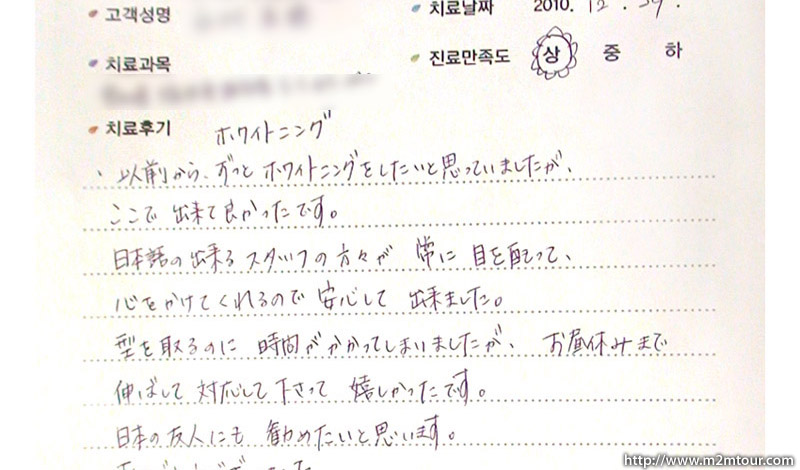 고객성명
치료날짜 2010. 12. 29.
치료과목
진료만족도 상 중 하
치료후기 ホワイトニング
、以前から、ずっとホワイトニングをしたいと思っていましたが、
ここで 出来て良かったです。
日本語の出来るスタッフの方々が 常に 目を配って、
心をかけてくれるので 安心して 出来ました。
型を取るのに 時間がかかってしまいましたが、 お昼休みまで
伸ばして 対応して下さって 嬉しかったです。
日本の友人にも 勧めたいと思います。
http://www.m2mtour.com